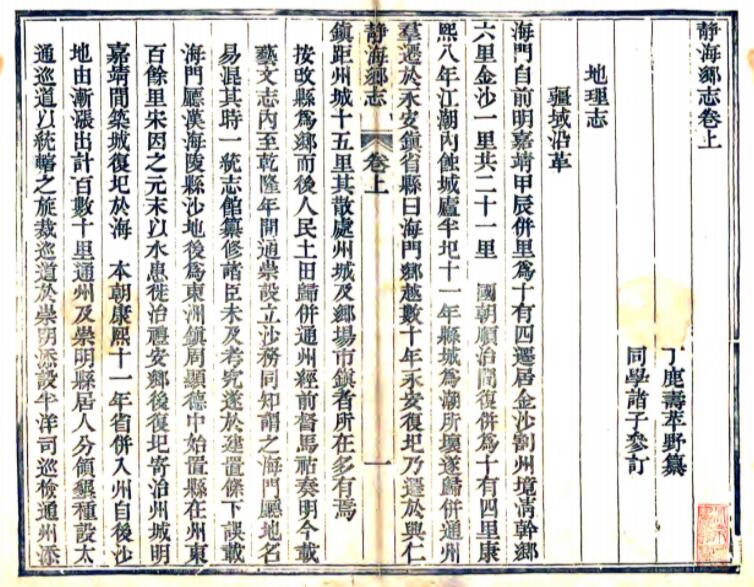 静海鄉志卷上
丁鹿壽苹野纂
同學諸子參訂
地理志
疆域沿革
海門自前明嘉靖甲辰併里爲十有四遷居金沙割州境淸幹鄉
六里金沙一里共二十一里　國朝順治間復併爲十有四里康
熙八年江潮內蝕城廬半圯十一年縣城爲潮所壞遂歸併通州
羣遷於永安鎭省縣曰海門鄉越數十年永安復圯乃遷於興仁
鎭距州城十五里其散處州城及鄉場市鎭者所在多有焉
静海鄉志　卷上　一
按改縣爲鄉而後人民土田歸併通州經前督馬祜奏明今載
藝文志內至乾隆年開通崇設立沙務同知謂之海門廳地名
易混其時一統志館纂修諸臣未及考究遂於建置條下誤載
海門廳漢海陵縣沙地後爲東洲鎭周顯德中始置縣在州東
百餘里宋因之元末以水患徙治禮安鄉後復圯寄治州城明
嘉靖間築城復圯於海　本朝康熙十一年省併入州自後沙
地由漸漲出計百數十里通州及崇明縣居人分領墾種設太
通巡道以統轄之旋裁巡道於崇明添設半洋司巡檢通州添